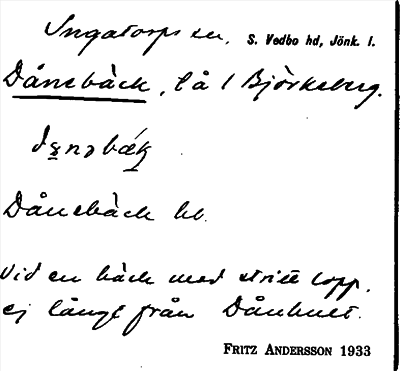 Ingatorps sn, S. Vedbo hd, Jönk. l.
Dånebäck, lå / Björkeberg.
Dånebäck bl.
Vid en bäck med stritt lopp,
ej långt från Dånhult.
FRITZ ANDERSSON 1933